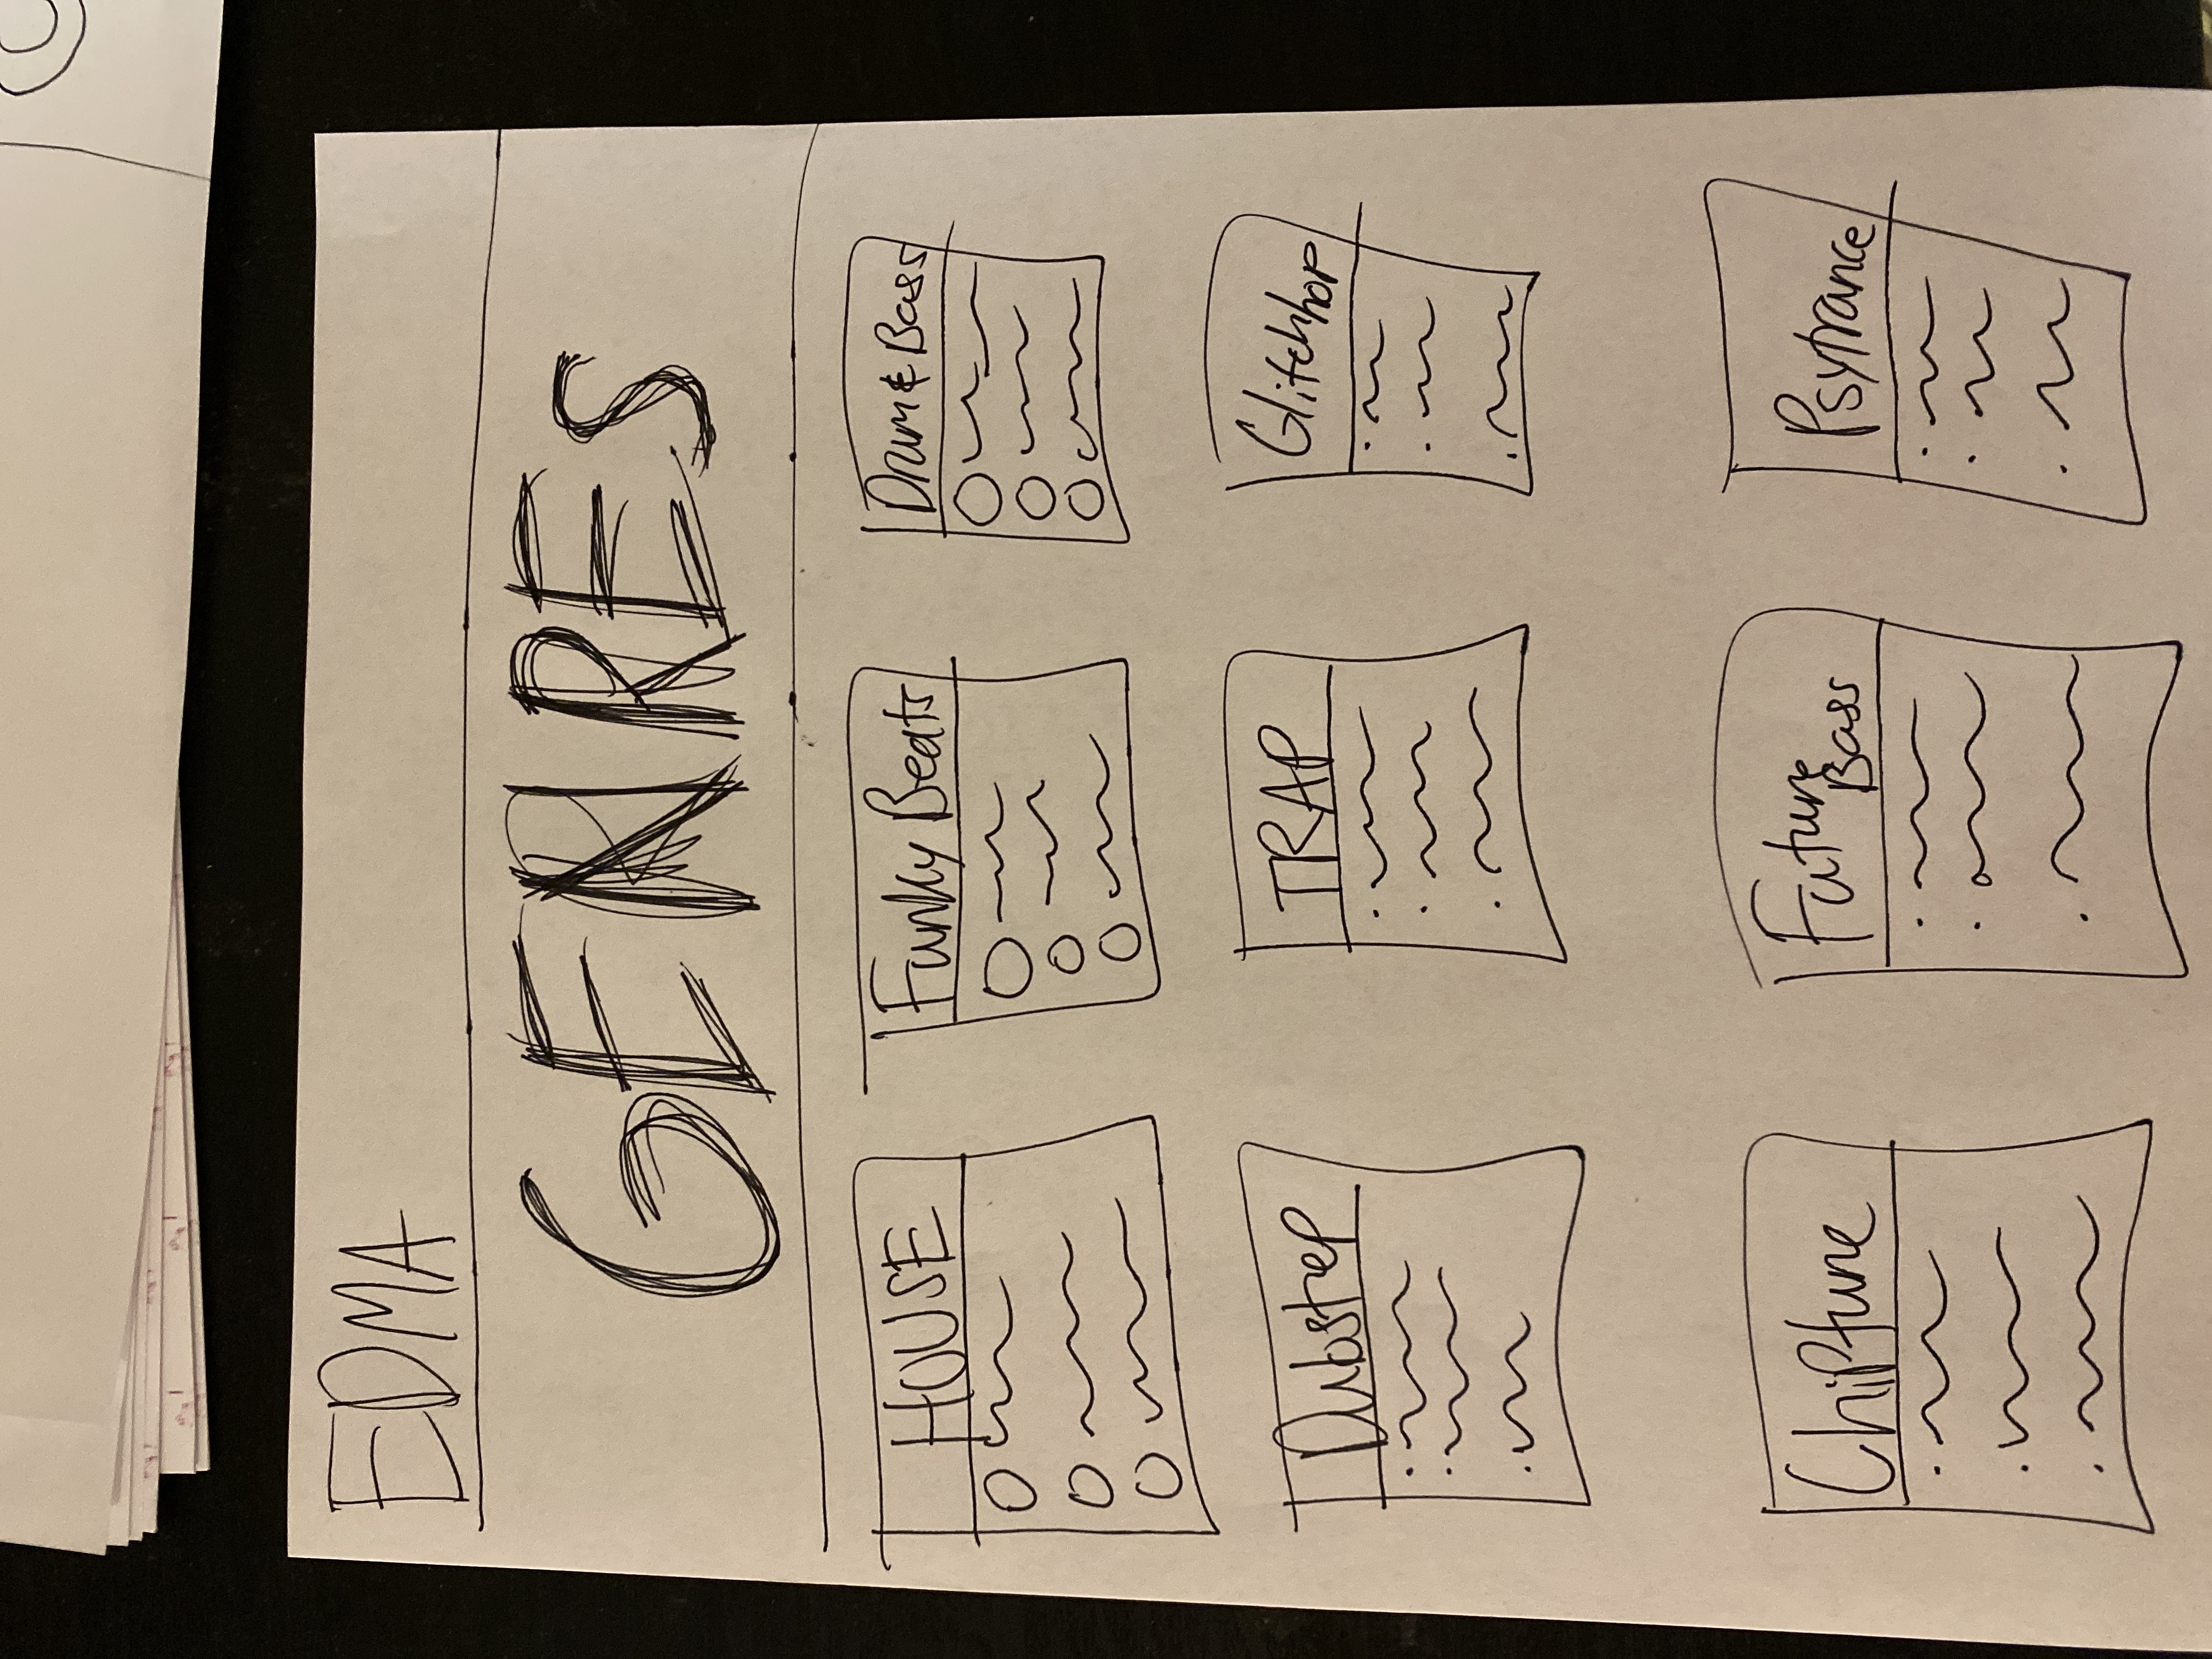 EDMA
GENRES
HOUSE
Funky Beats
Drum & Bass
Dubstep
TRAP
Glitchhop
Chiptune
Future
Bass
Psytrance